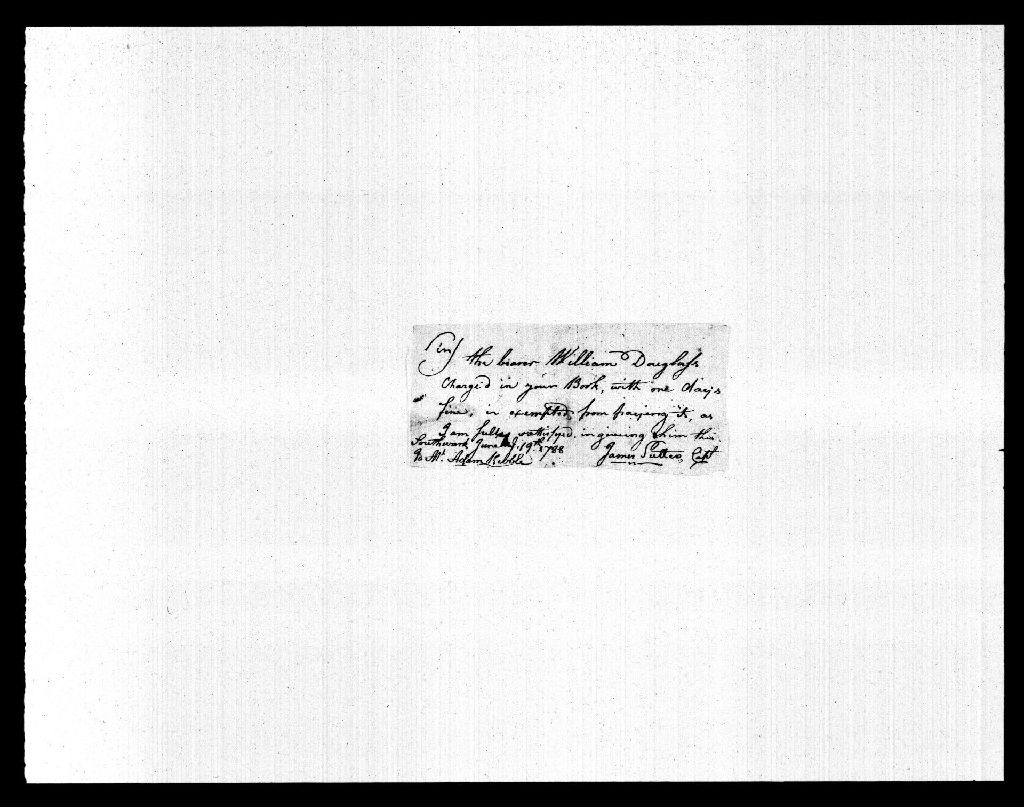 Sir
the bearer William Douglass
Charge'd in your Book, with one days
fine, is exempted from paying it, as
I am fully sattisfyed, in giveing him this
Southwark June 19th 1788
James Cap't
To Mr Adam